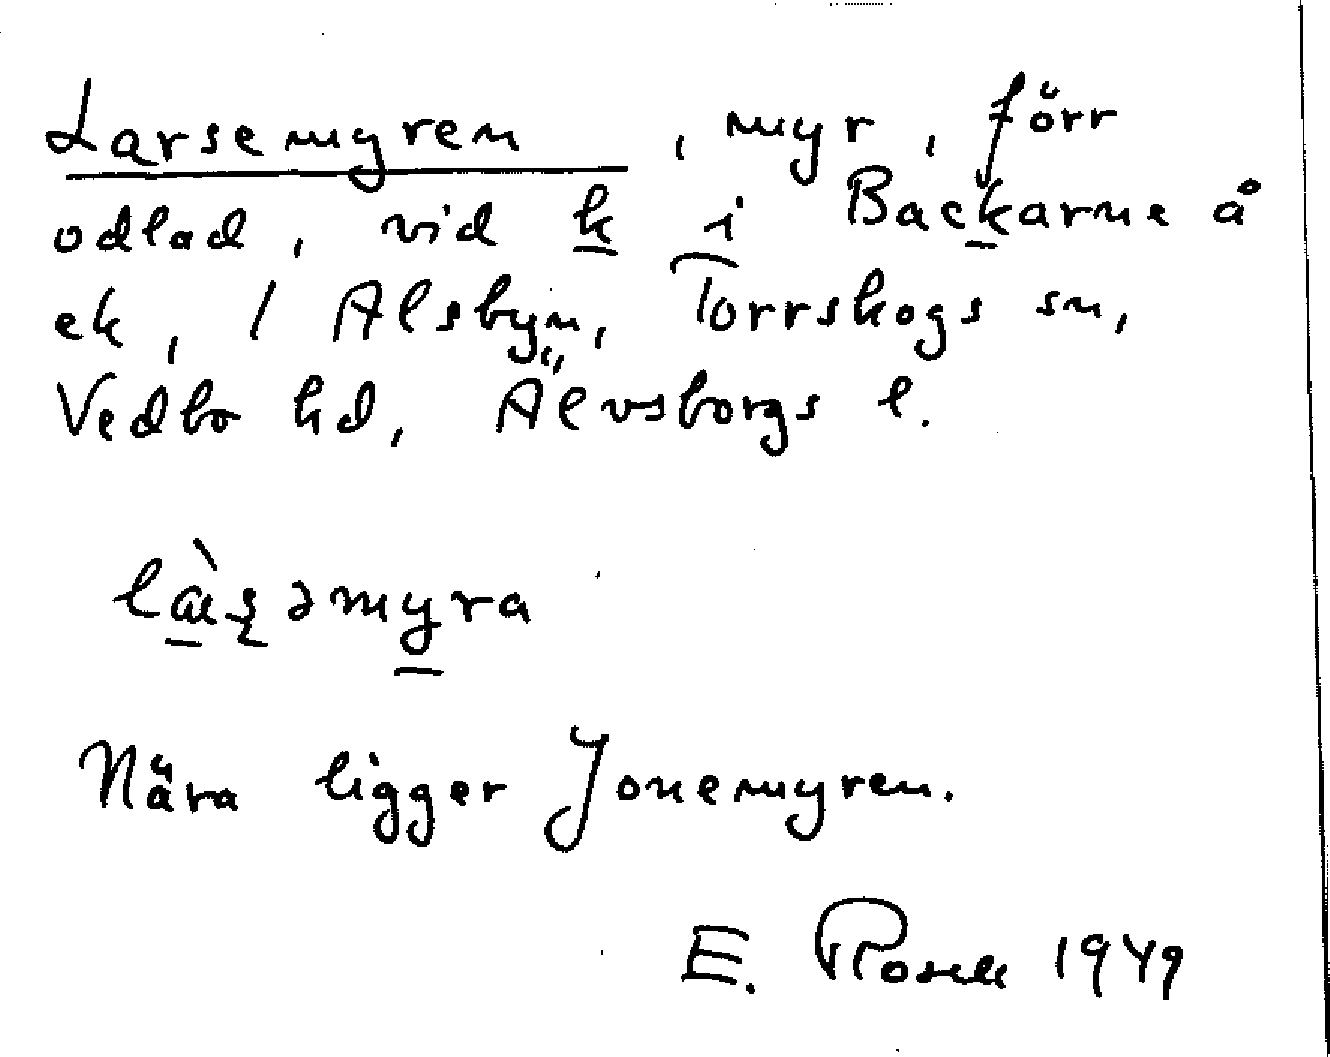 Larsemyren , myr , förr
odlad , vid k i Backarne å
ek , / Alsbyn , Torrskogs sn ,
Vedbo hd , Älvsborgs l .
là̠ʂəmyra
Nära ligger Jonemyren .
E. Rosell 1949